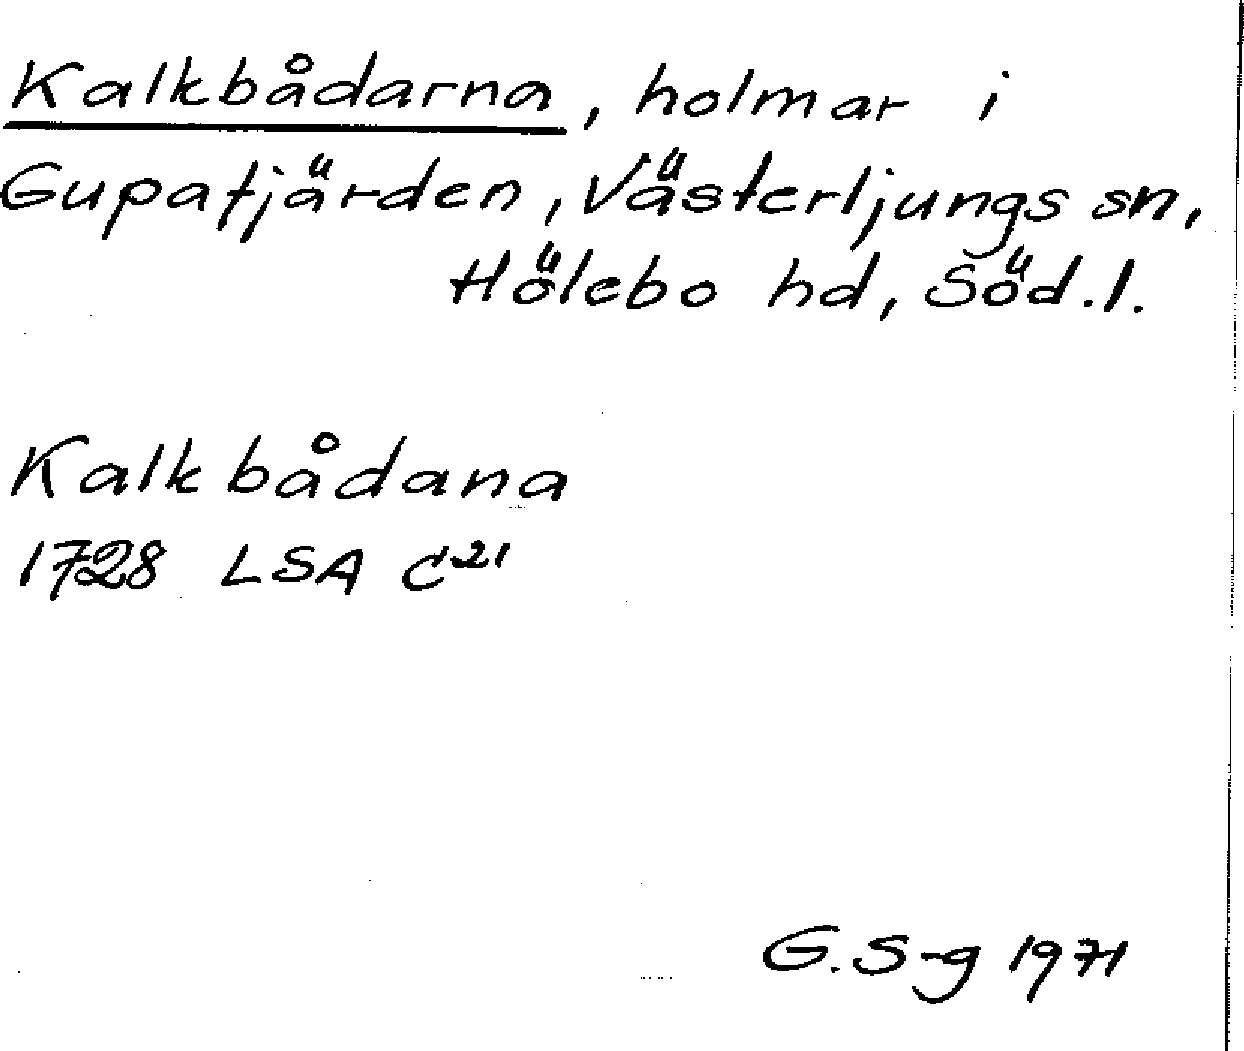 Kalkbådarna, holmar i
Gupafjärden, Västerljungs sn,
Hölebo hd, Söd.l.
Kalkbådana
1728 LSA C²¹
G.S-g 1971